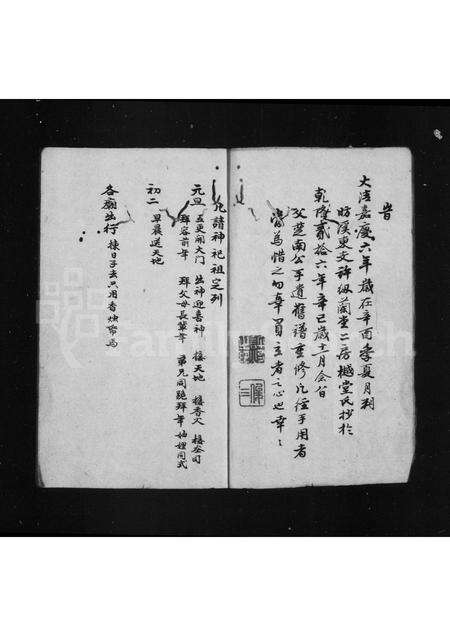 旹
大清嘉慶六年歲在辛酉季夏月利
坊溪東文許級蘭堂二房樾堂氏抄於
乾隆貳拾六年辛巳歲十一月余省
父楚南公手遺舊譜重修凡經手用者
當為惜之勿辜員立者之心也幸〻
凡請神祀祖定列
元旦 五更開大门 出神迎喜神 接天地 接香火 接灶司
拜容前年 拜父母長輩年 弟兄同跪拜年 妯娌同式
初二 早晨送天地
各廟出行 揀日子去只用香燭帛馬